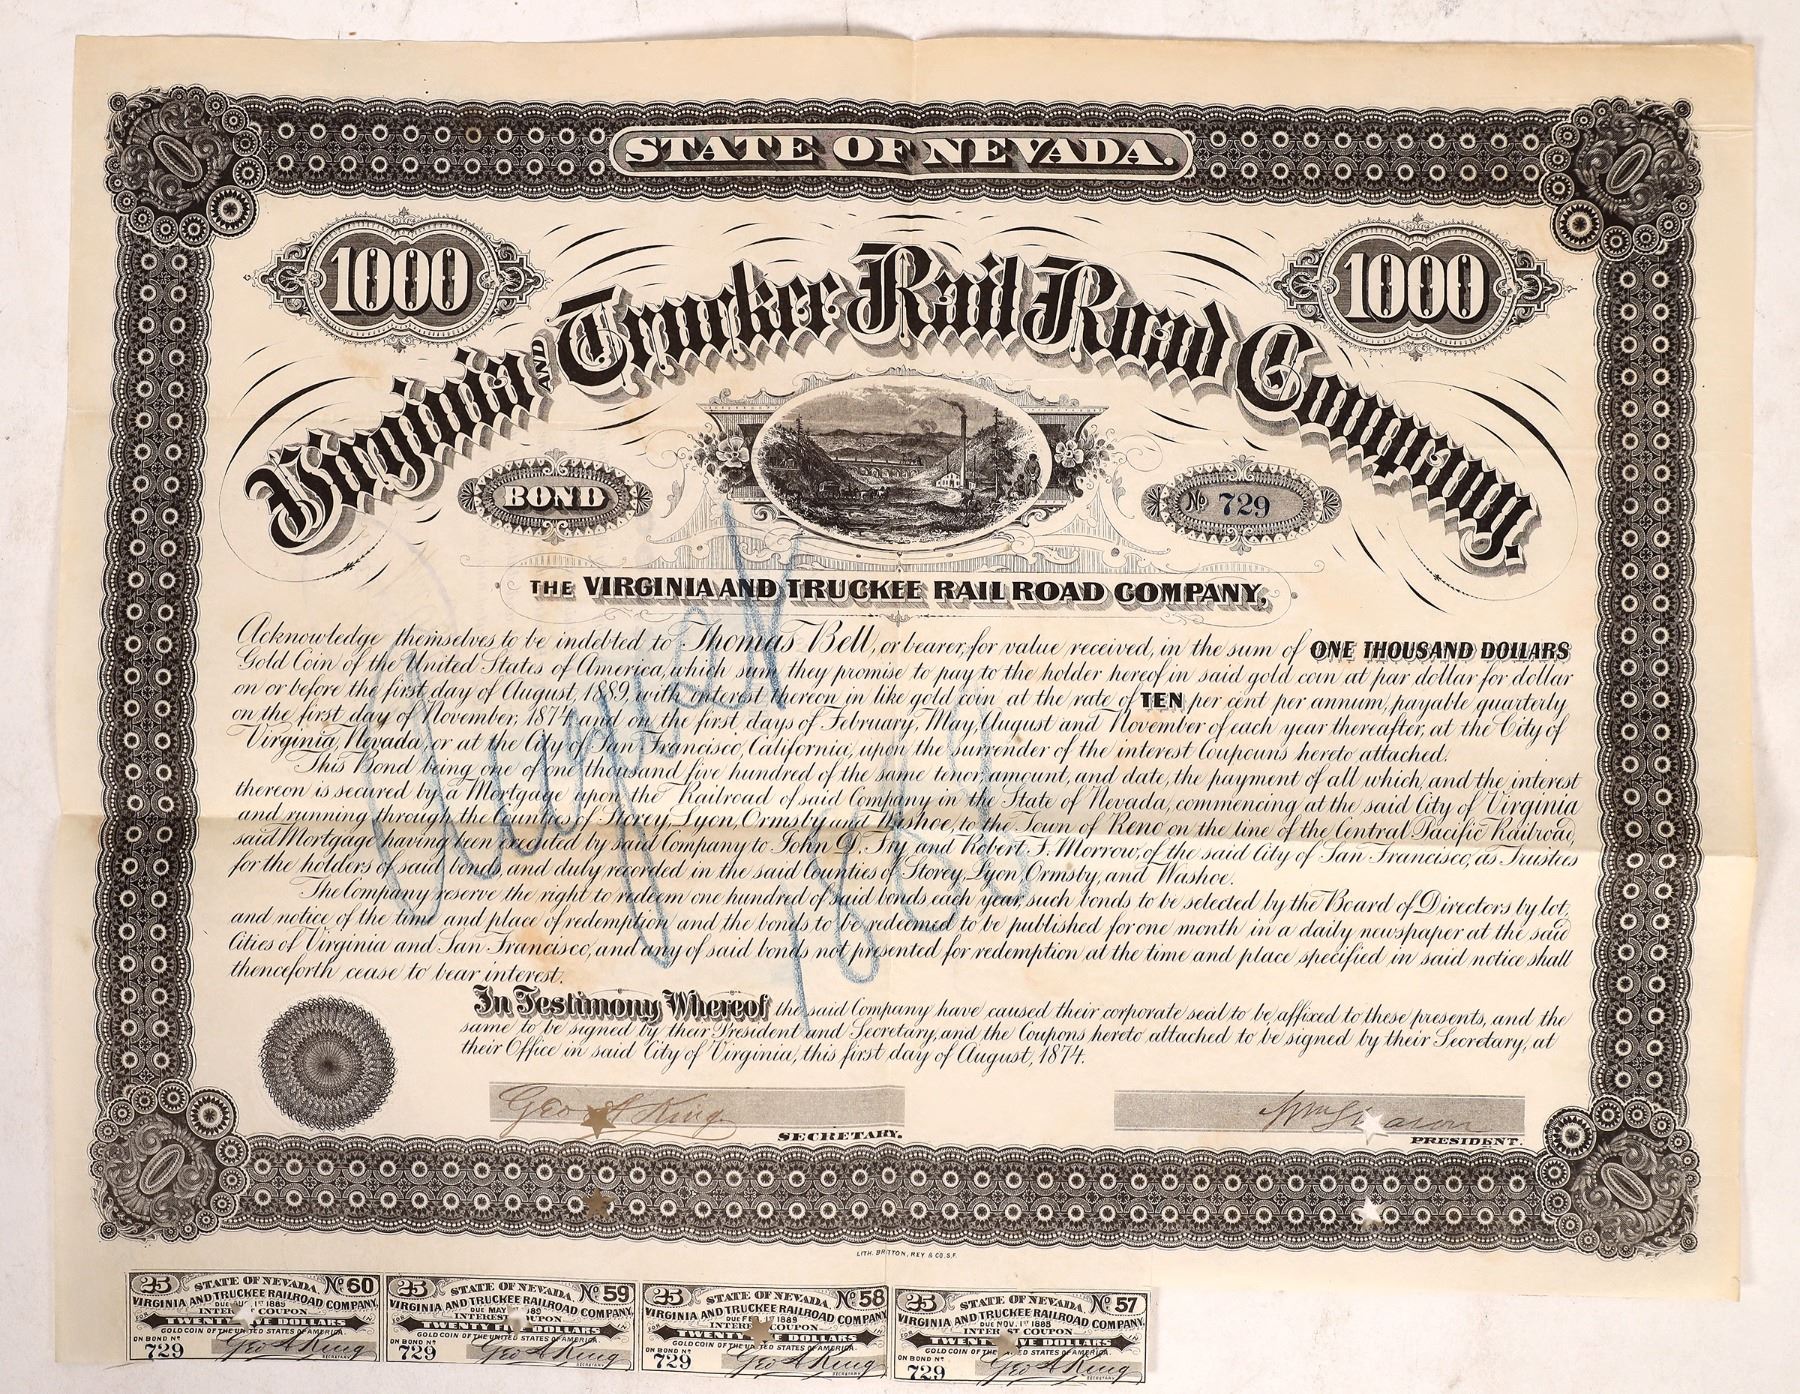 STATE OF NEVADA.
1000
1000
Virginia AND Truckee Rail Road Company.
BOND
No 729
THE VIRGINIA AND TRUCKEE RAIL ROAD COMPANY,
Acknowledge themselves to be indebted to Thomas Bell, or bearer, for value received, in the sum of ONE THOUSAND DOLLARS
Gold Coin of the United States of America, which sum they promise to pay to the holder hereof in said gold coin at par dollar for dollar
on or before the first day of August, 1889, with interest thereon in like gold coin at the rate of TEN per cent per annum, payable quarterly
on the first day of November, 1874 and on the first days of February, May, August and November of each year thereafter, at the City of
Virginia, Nevada, or at the City of San Francisco, California, upon the surrender of the interest Coupouns hereto attached.
This Bond being one of one thousand five hundred of the same tenor, amount, and date, the payment of all which, and the interest
thereon is secured by a Mortgage upon the Railroad of said Company in the State of Nevada, commencing at the said City of Virginia
and running through the Counties of Storey, Lyon, Ormsby and Washoe, to the Town of Reno on the line of the Central Pacific Railroad,
said Mortgage having been executed by said Company to John D. Fry and Robert F. Morrow, of the said City of San Francisco, as Trustees
for the holders of said bonds, and duly recorded in the said Counties of Storey, Lyon, Ormsby, and Washoe.
The Company reserve the right to redeem one hundred of said bonds each year, such bonds to be selected by the Board of Directors by lot,
and notice of the time and place of redemption and the bonds to be redeemed to be published for one month in a daily newspaper at the said
Cities of Virginia and San Francisco, and any of said bonds not presented for redemption at the time and place specified in said notice shall
thenceforth cease to bear interest.
In Testimony Whereof the said Company have caused their corporate seal to be affixed to these presents, and the
same to be signed by their President and Secretary, and the Coupons hereto attached to be signed by their Secretary, at
their Office in said City of Virginia, this first day of August, 1874.
Geo A King
SECRETARY.
Wm Sharon
PRESIDENT.
LITH. BRITTON, REY & CO. S.F.
25 STATE OF NEVADA No 60
VIRGINIA AND TRUCKEE RAILROAD COMPANY,
DUE AUG. 1st 1889
INTEREST COUPON
FOR TWENTY FIVE DOLLARS IN
GOLD COIN OF THE UNITED STATES OF AMERICA.
ON BOND No
729
Geo A King
SECRETARY
25 STATE OF NEVADA No 59
VIRGINIA AND TRUCKEE RAILROAD COMPANY,
DUE MAY 89
INTEREST COUPON
FOR TWENTY FIVE DOLLARS IN
GOLD COIN OF THE UNITED STATES OF AMERICA.
ON BOND No
729
Geo A King
SECRETARY
25 STATE OF NEVADA No 58
VIRGINIA AND TRUCKEE RAILROAD COMPANY,
DUE FEB. 1st 1889
INTEREST COUPON
FOR TWENTY FIVE DOLLARS IN
GOLD COIN OF THE UNITED STATES OF AMERICA.
ON BOND No
729
Geo A King
SECRETARY
25 STATE OF NEVADA No 57
VIRGINIA AND TRUCKEE RAILROAD COMPANY,
DUE NOV. 1st 1888
INTEREST COUPON
FOR TWENTY FIVE DOLLARS IN
GOLD COIN OF THE UNITED STATES OF AMERICA.
ON BOND No
729
Geo A King
SECRETARY